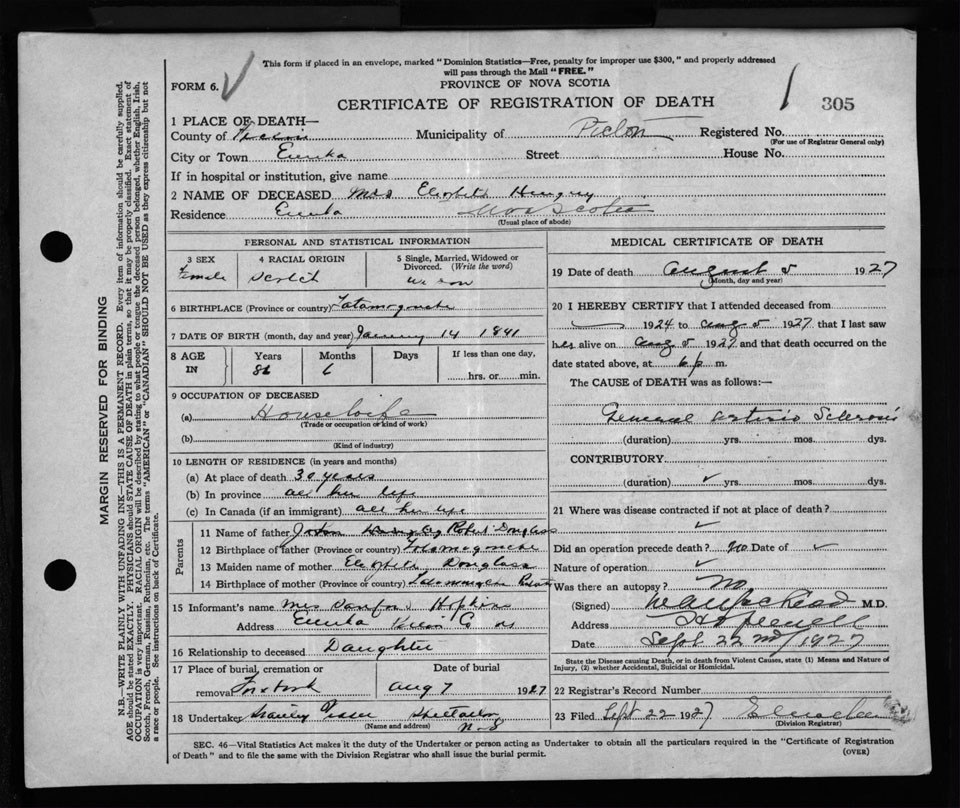 This form if placed in an envelope, marked "Dominion Statistics—Free, penalty for improper use $300," and properly addressed
will pass through the Mail "FREE."
FORM 6.
PROVINCE OF NOVA SCOTIA
CERTIFICATE OF REGISTRATION OF DEATH
305
1 PLACE OF DEATH—
County of Municipality of Pictou Registered No.
(For use of Registrar General only)
City or Town Eureka Street House No.
If in hospital or institution, give name
2 NAME OF DECEASED Mrs Elizabeth
Residence Eureka Nova Scotia
(Usual place of abode)
PERSONAL AND STATISTICAL INFORMATION
3 SEX 4 RACIAL ORIGIN 5 Single, Married, Widowed or
Divorced. (Write the word)
Female Scotch
6 BIRTHPLACE (Province or country) Tatamagouche
7 DATE OF BIRTH (month, day and year) January 14 1841
8 AGE IN Years Months Days If less than one day,
86 6 hrs. or min.
9 OCCUPATION OF DECEASED
(a) Housewife
(Trade or occupation or kind of work)
(b)
(Kind of industry)
10 LENGTH OF RESIDENCE (in years and months)
(a) At place of death 30 years
(b) In province all her life
(c) In Canada (if an immigrant) all her life
Parents
11 Name of father Robert Douglass
12 Birthplace of father (Province or country) Tatamagouche
13 Maiden name of mother Elizabeth Douglass
14 Birthplace of mother (Province or country) Tatamagouche
15 Informant's name Mrs Hopkins
Address Eureka NS
16 Relationship to deceased Daughter
17 Place of burial, cremation or Date of burial
removal Aug 7 1927
18 Undertaker
(Name and address) N-S
MEDICAL CERTIFICATE OF DEATH
19 Date of death August 5 1927
(Month, day and year)
20 I HEREBY CERTIFY that I attended deceased from
1924 to Aug 5 1927 that I last saw
her alive on Aug 5 1927 and that death occurred on the
date stated above, at 6 p m.
The CAUSE of DEATH was as follows:—
General Arterio Sclerosis
(duration) yrs. mos. dys.
CONTRIBUTORY
(duration) yrs. mos. dys.
21 Where was disease contracted if not at place of death?
Did an operation precede death? No Date of
Nature of operation
Was there an autopsy? No
(Signed) M.D.
Address Hopewell
Date Sept 22nd/1927
State the Disease causing Death, or in death from Violent Causes, state (1) Means and Nature of
Injury, (2) whether Accidental, Suicidal or Homicidal.
22 Registrar's Record Number
23 Filed Sept 22 1927
(Division Registrar)
SEC. 46—Vital Statistics Act makes it the duty of the Undertaker or person acting as Undertaker to obtain all the particulars required in the "Certificate of Registration
of Death" and to file the same with the Division Registrar who shall issue the burial permit.
(OVER)
MARGIN RESERVED FOR BINDING
N.B.—WRITE PLAINLY WITH UNFADING INK—THIS IS A PERMANENT RECORD. Every item of information should be carefully supplied.
AGE should be stated EXACTLY. PHYSICIANS should STATE CAUSE OF DEATH in plain terms, so that it may be properly classified. Exact statement of
OCCUPATION is very important. RACIAL ORIGIN will be described by stating to what people or tongue the deceased person belonged, whether English, Irish,
Scotch, French, German, Russian, Ruthenian, etc. The terms "AMERICAN" or "CANADIAN" SHOULD NOT BE USED as they express citizenship but not
a race or people. See instructions on back of Certificate.